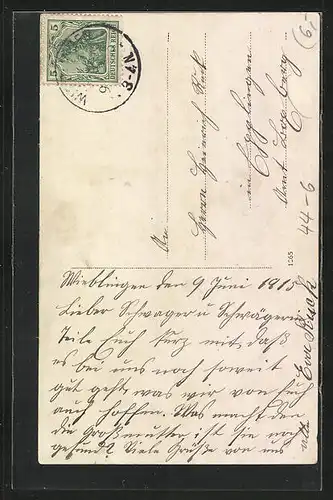 5 DEUTSCHES REICH 5
3-4 N.
(6,-
An
Herrn Heinrich
in
Amt Boxberg
44-6
1365
Wieblingen den 9 Juni 1915
Lieber Schwager u Schwägerin
Teile Euch kurz mit daß
es bei uns noch soweit
gut geht, was wir von Euch
auch hoffen. Was macht den
die Großmutter ist sie noch
gesund? Viele Grüße von uns
alle